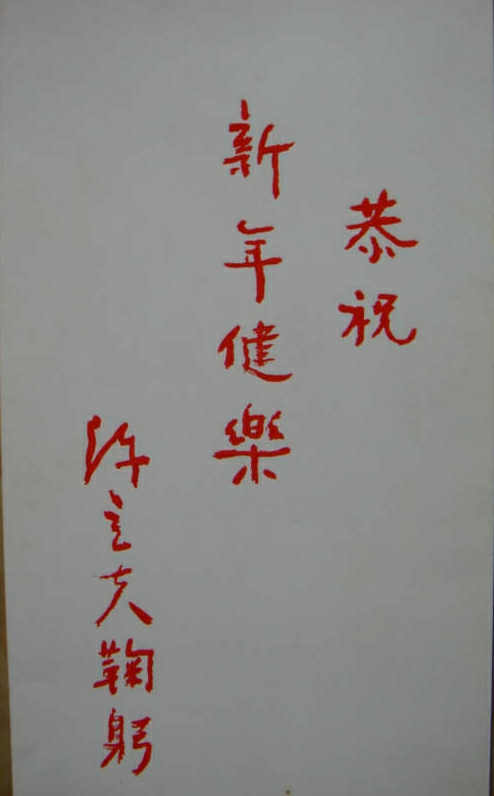 恭祝
新年健樂
許立夫鞠躬